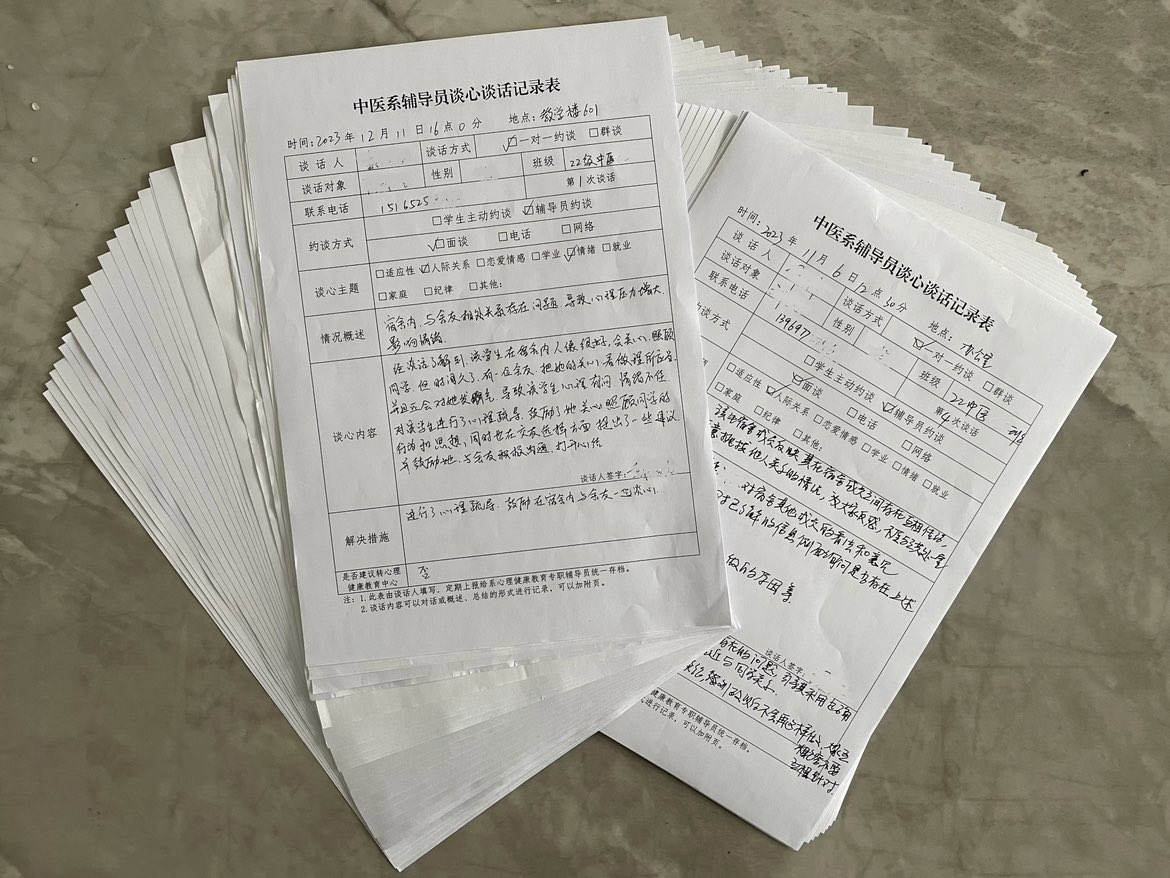 中医系辅导员谈心谈话记录表
时间：2023年12月11日16点0分 地点：教学楼601
谈话人 谈话方式 ☑一对一约谈 □群谈
谈话对象 性别 班级 22级中医
联系电话 1516525 第1次谈话
约谈方式 □学生主动约谈 ☑辅导员约谈
☑面谈 □电话 □网络
谈心主题 □适应性 ☑人际关系 □恋爱情感 □学业 ☑情绪 □就业
□家庭 □纪律 □其他：
情况概述 宿舍内，与舍友相处关系存在问题，导致心理压力增大，
影响情绪
谈心内容 经谈话了解到，该学生在宿舍内人缘很好，会关心、照顾
同学，但时间久了，有一位舍友，把她的关心看做理所应当
并且还会对她发脾气，导致该学生心理有问 情绪不佳
对该学生进行了心理疏导，鼓励了她关心照顾同学的
行为和思想，同时也在交友选择方面提出了一些建议，
并鼓励她，与舍友积极沟通，打开心结
谈话人签字：
解决措施 进行了心理疏导，鼓励在宿舍内与舍友一起谈心．
是否建议转心理
健康教育中心 否
注：1.此表由谈话人填写、定期上报给系心理健康教育专职辅导员统一存档。
2.谈话内容可以对话或概述、总结的形式进行记录，可以加附页。
中医系辅导员谈心谈话记录表
时间：2023年11月6日12点30分 地点：办公室
谈话人 谈话方式 ☑一对一约谈 □群谈
谈话对象 性别 班级 22中医
联系电话 139697 第4次谈话
约谈方式 □学生主动约谈 ☑辅导员约谈
☑面谈 □电话 □网络
□适应性 ☑人际关系 □恋爱情感 □学业 □情绪 □就业
□家庭 □纪律 □其他：
宿舍成员反映其在宿舍成员之间存在
他人关系的情况
对宿舍其他成员的看法和意见
自己了解的信息侧面询问是否存在上述
做的原因等
谈话人签字：
存在的问题，引导其采用
与同学关系
健康教育专职辅导员统一存档。
进行记录，可以加附页。